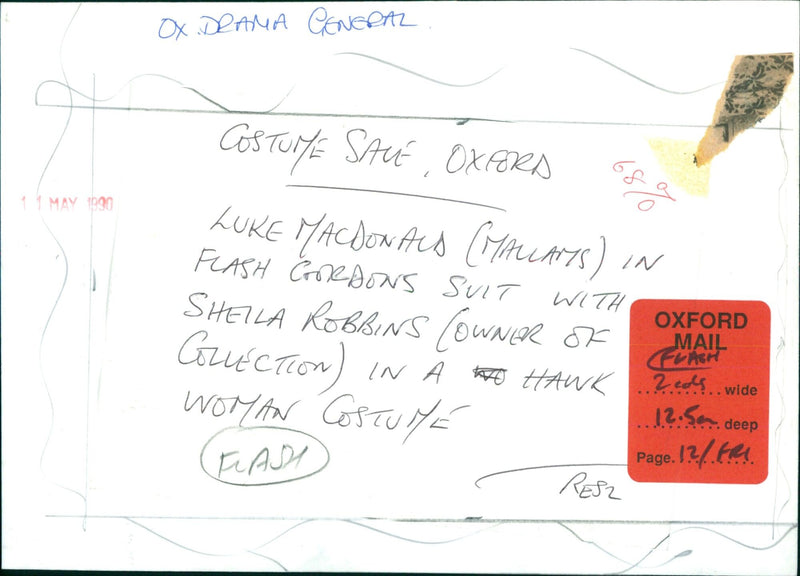 OX. DRAMA GENERAL
COSTUME SALE, OXFORD
11 MAY 1990
LUKE MACDONALD (MALLAMS) IN
FLASH GORDONS SUIT WITH
SHEILA ROBBINS (OWNER OF
COLLECTION) IN A HAWK
WOMAN COSTUME
FLASH
OXFORD
MAIL
FLASH
2 cols wide
12.5cm deep
Page. 12/FRI